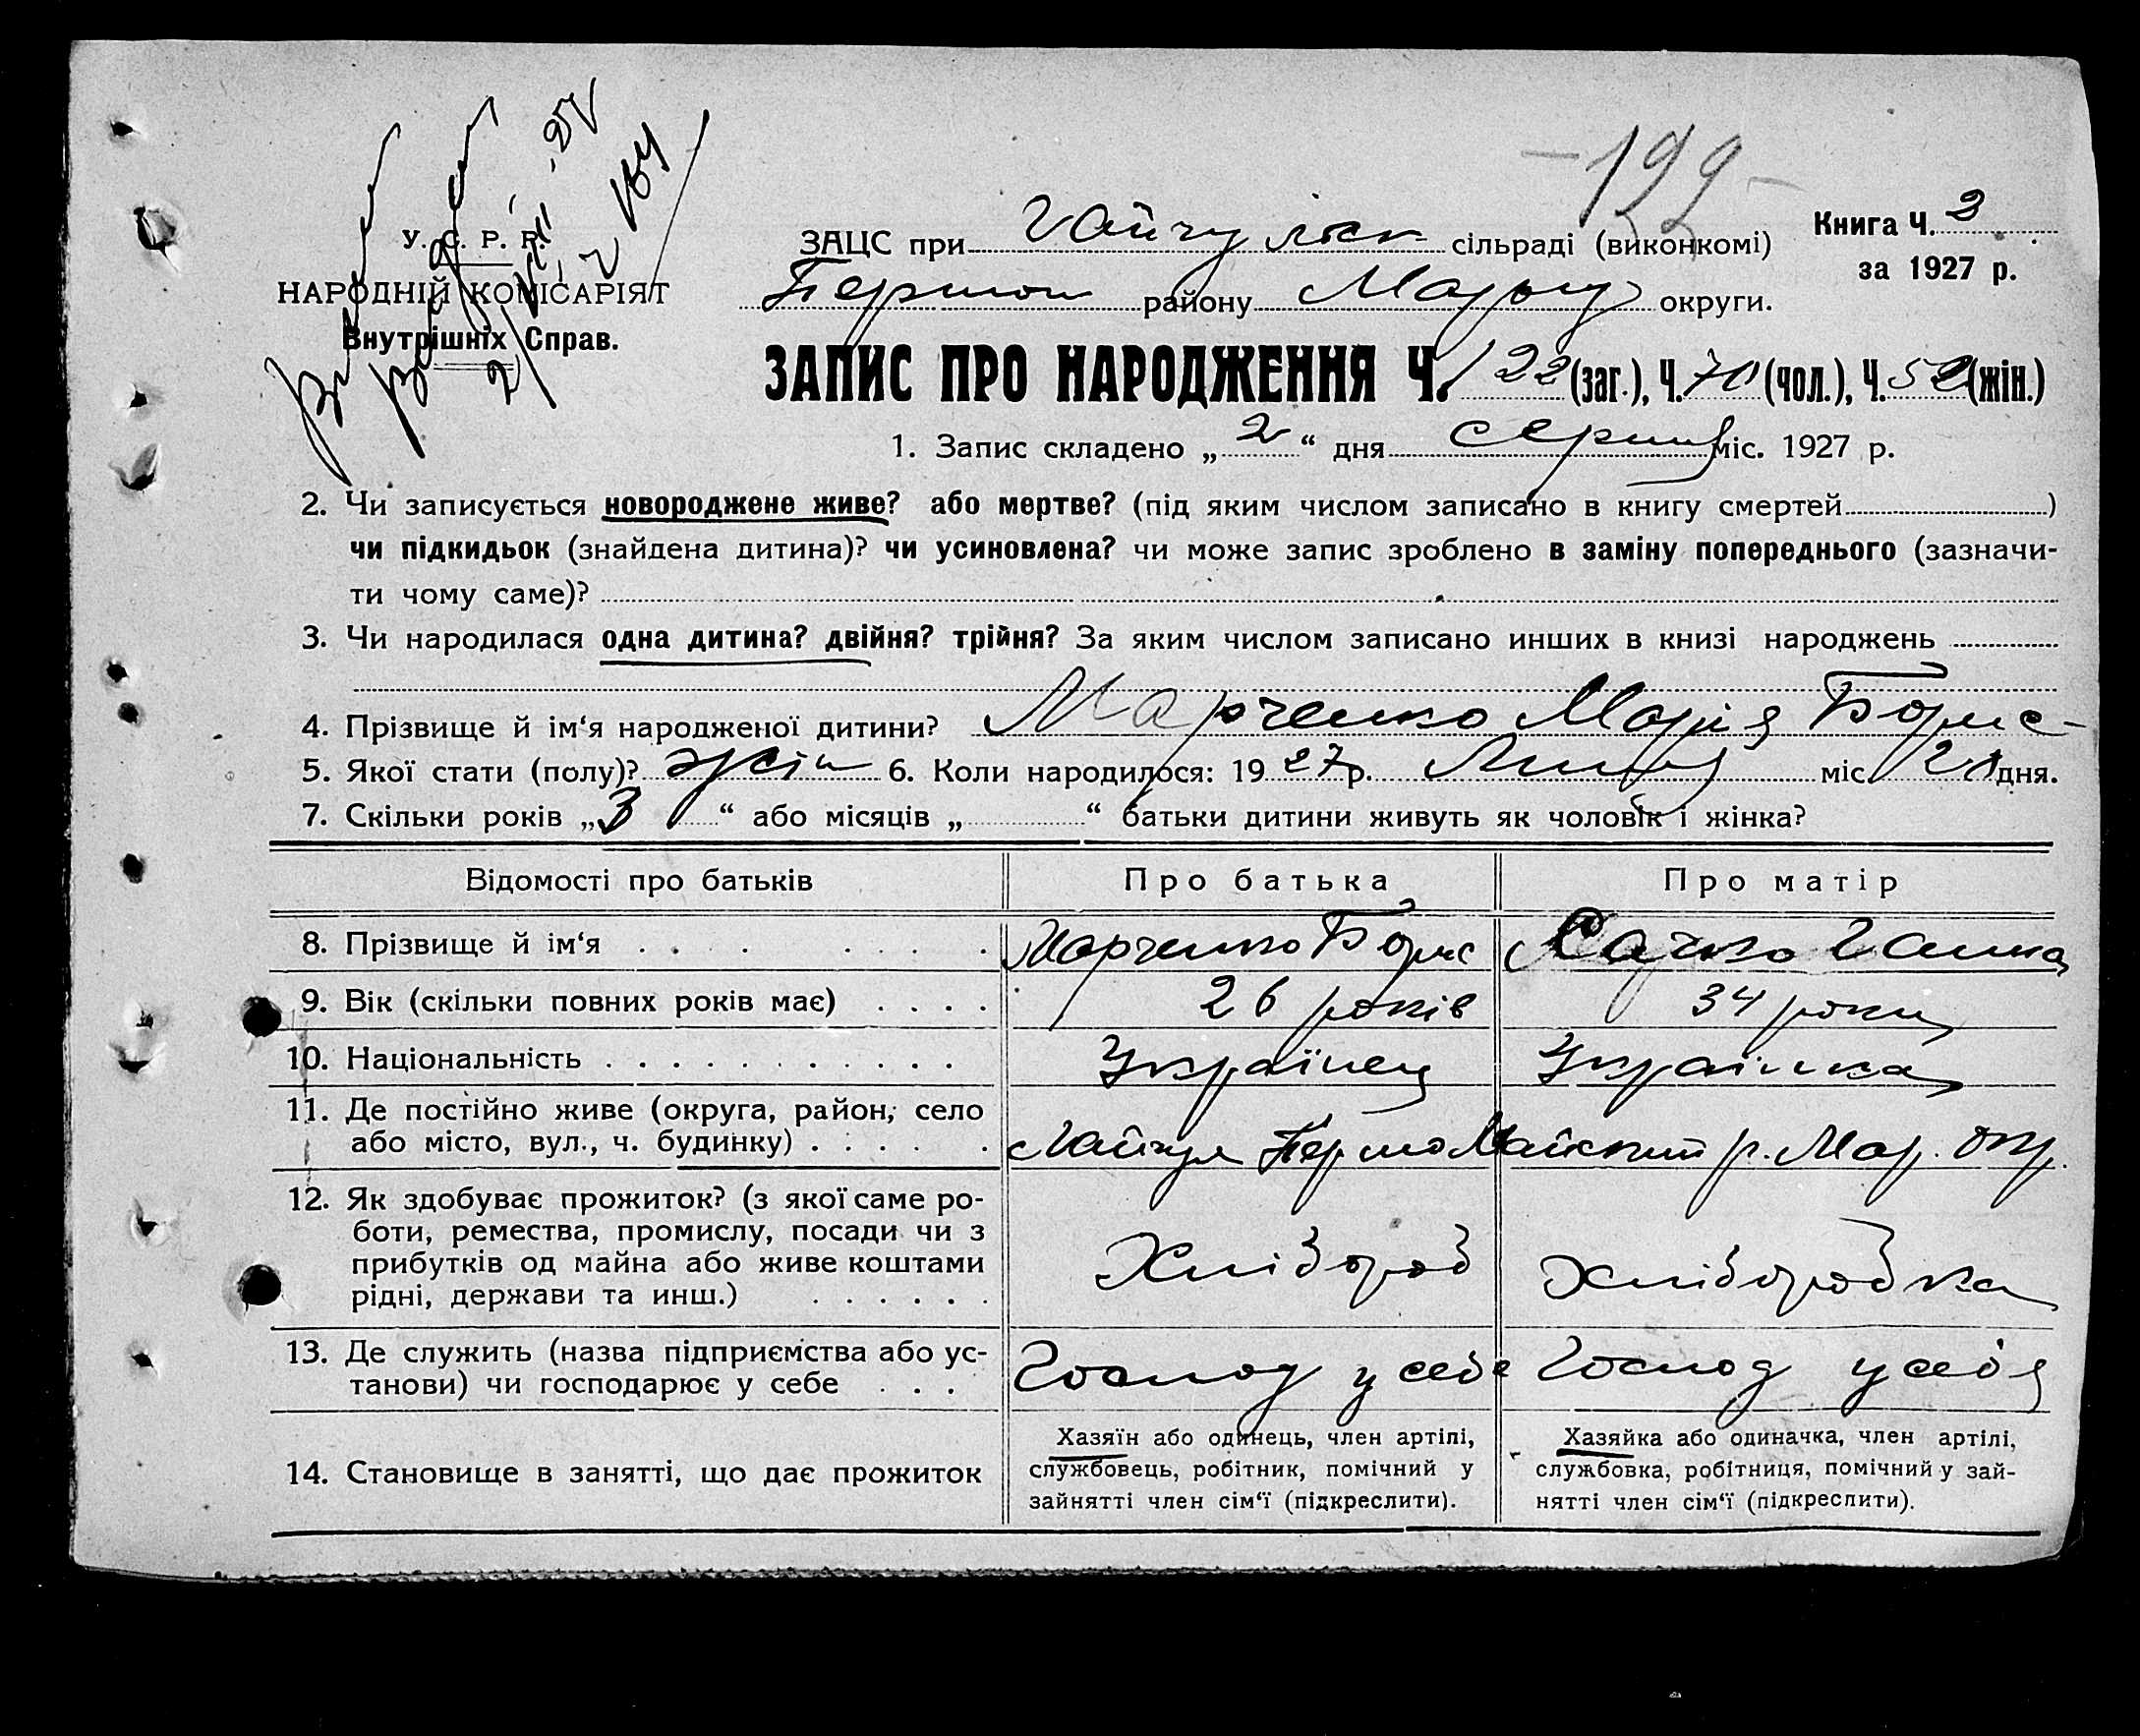 -122-
У. С. Р. Р.
НАРОДНІЙ КОМІСАРІЯТ
Внутрішніх Справ.
Книга Ч. 3
за 1927 р.
ЗАЦС при Гайчульск сільраді (виконкомі)
Першом району Маріуп округи.
ЗАПИС ПРО НАРОДЖЕННЯ Ч. 122 (заг.), Ч. 70 (чол.), Ч. 52 (жін.)
1. Запис складено „ 2 “ дня серпня міс. 1927 р.
2. Чи записується новороджене живе? або мертве? (під яким числом записано в книгу смертей )
чи підкидьок (знайдена дитина)? чи усиновлена? чи може запис зроблено в заміну попереднього (зазначи-
ти чому саме)?
3. Чи народилася одна дитина? двійня? трійня? За яким числом записано инших в книзі народжень
4. Прізвище й ім‘я народженої дитини? Марченко Марія Борис-
5. Якої стати (полу)? жін 6. Коли народилося: 1927 р. Липня міс. дня.
7. Скільки років „ 3 “ або місяців „ “ батьки дитини живуть як чоловік і жінка?
Відомості про батьків Про батька Про матір
8. Прізвище й ім‘я Марченко Борис Сачко Ганна
9. Вік (скільки повних років має) 26 років 34 роки
10. Національність Українец Українка
11. Де постійно живе (округа, район, село
або місто, вул., ч. будинку) Гайчул ПершоМайский р. Мар. Окр.
12. Як здобуває прожиток? (з якої саме ро-
боти, ремества, промислу, посади чи з
прибутків од майна або живе коштами
рідні, держави та инш.) Хлібороб хліборобка
13. Де служить (назва підприємства або ус-
танови) чи господарює у себе Господ у себе Господ у себя
14. Становище в занятті, що дає прожиток
Хазяїн або одинець, член артілі,
службовець, робітник, помічний у
зайнятті член сім‘ї (підкреслити).
Хазяйка або одиначка, член артілі,
службовка, робітниця, помічний у зай-
нятті член сім‘ї (підкреслити).